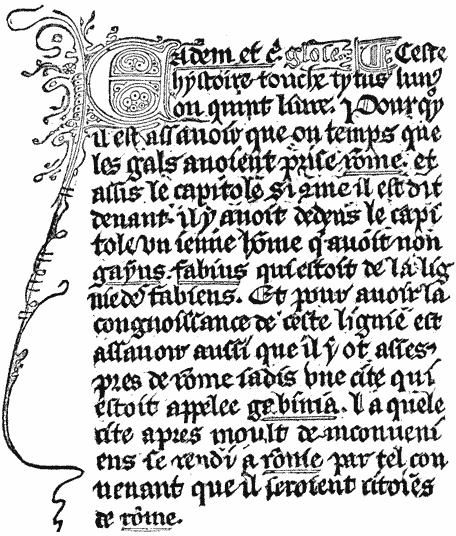 Eadem et c̄. glose. Ceste
hystoire touche tytus liuꝰ
ou quint liure. Pourqͥy
il est assauoir que ou temps que
les gals auoient prise rōme. et
assis le capitole si ꝯme il est dit
deuant. il y auoit dedens le capi
tole vn ieune hōme q̄ auoit non
gayus fabius qui estoit de la lig
nie des fabiens. Et pour auoir la
congnoissance de ceste lignie est
assauoir aussi que il y ot asses
pres de rōme iadis vne cite qui
estoit appelee gebinia. la quele
cite apres moult de inconueni
ens se rendi a rōme par tel con
uenant que il seroient citoiēs
de rōme.